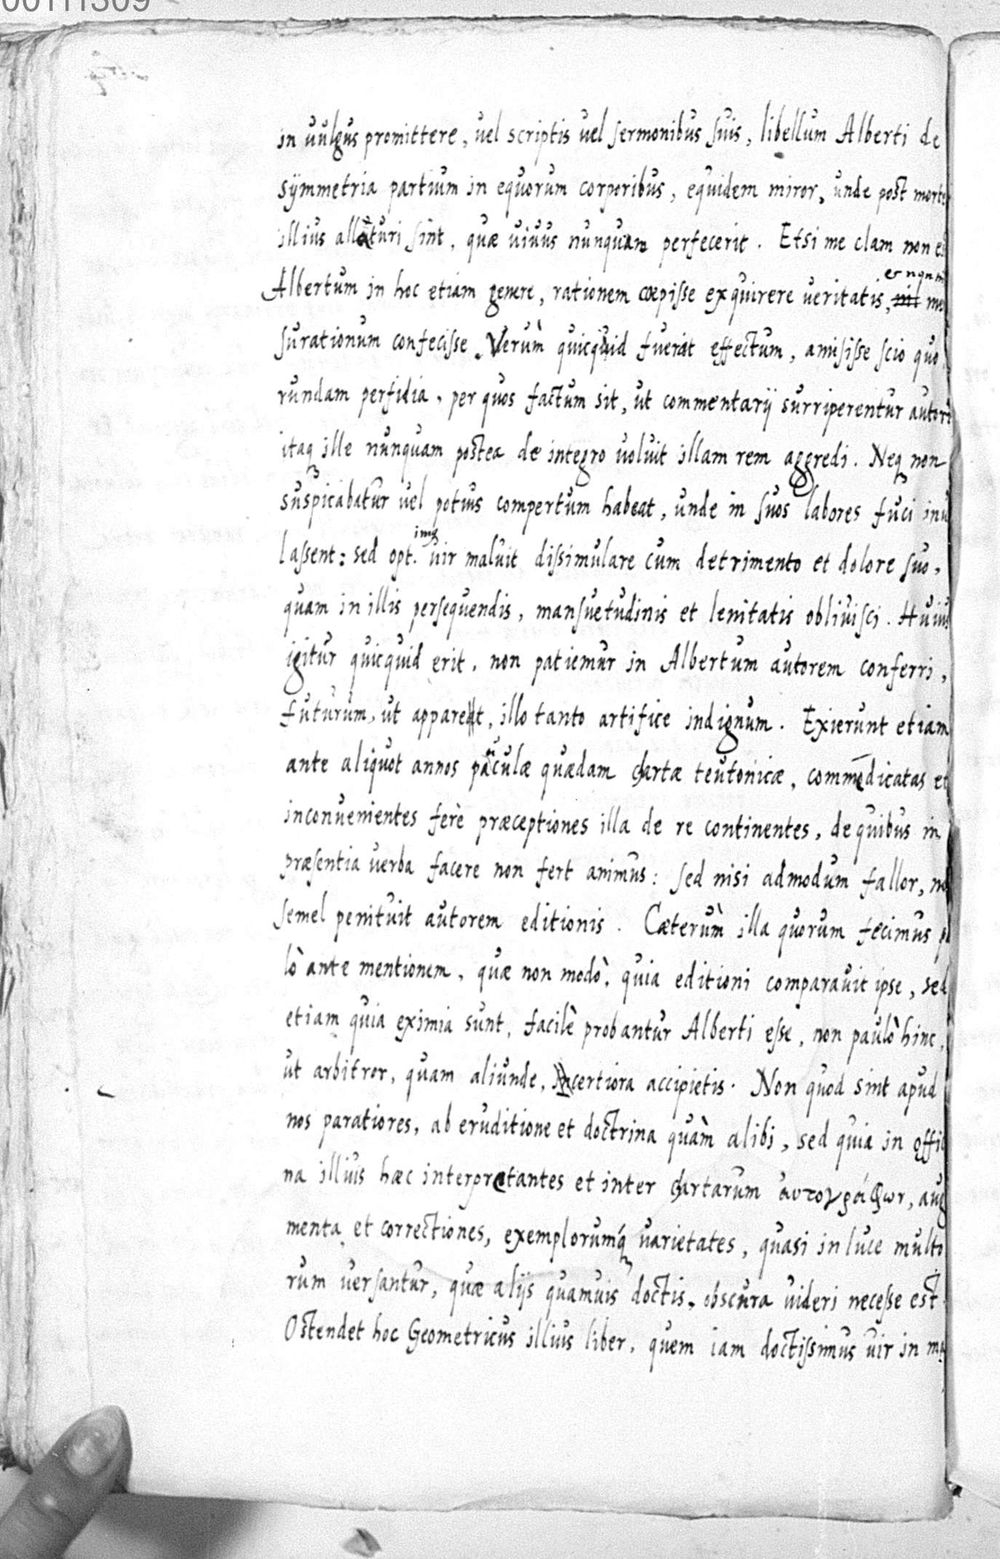 00111309
in uulgus promittere, uel scriptis uel sermonibus suis, libellum Alberti de
symmetria partium in equorum corporibus, equidem miror, unde post morte
illius allaturi sint, quæ uiuus nunquam perfecerit. Etsi me clam non e
Albertum in hoc etiam genere, rationem cœpisse exquirere ueritatis, me
surationum confecisse. Verùm quicquid fuerat effectum, amisisse scio quo
rundam perfidia, per quos factum sit, ut commentarij surriperentur autori
itaq ille nunquam postea de integro uoluit illam rem aggredi. Neq non
suspicabatur uel potius compertum habeat, unde in suos labores fuci inu
lassent: sed opt. imus uir maluit dissimulare cum detrimento et dolore suo,
quam in illis persequendis, mansuetudinis et lenitatis obliuisci. Huius
igitur quicquid erit, non patiemur in Albertum autorem conferri,
futurum, ut appareat, illo tanto artifice indignum. Exierunt etiam
ante aliquot annos pauculæ quædam chartæ teutonicæ, commēdicatas et
inconuenientes ferè præceptiones illa de re continentes, de quibus in
præsentia uerba facere non fert animus: sed nisi admodum fallor, no
semel penituit autorem editionis. Cæterùm illa quorum fecimus p
lò ante mentionem, quæ non modò, quia editioni comparauit ipse, sed
etiam quia eximia sunt, facilè probantur Alberti esse, non paulò hinc,
ut arbitror, quam aliunde, incertiora accipietis. Non quod sint apud
nos paratiores, ab eruditione et doctrina quàm alibi, sed quia in offic
na illius hæc interpretantes et inter chartarum ἀυτογράφων, aug
menta et correctiones, exemplorumq́ uarietates, quasi in luce multo
rum uersantur, quæ alijs quamuis doctis, obscura uideri necesse est.
Ostendet hoc Geometricus illius liber, quem iam doctissimus uir in ma